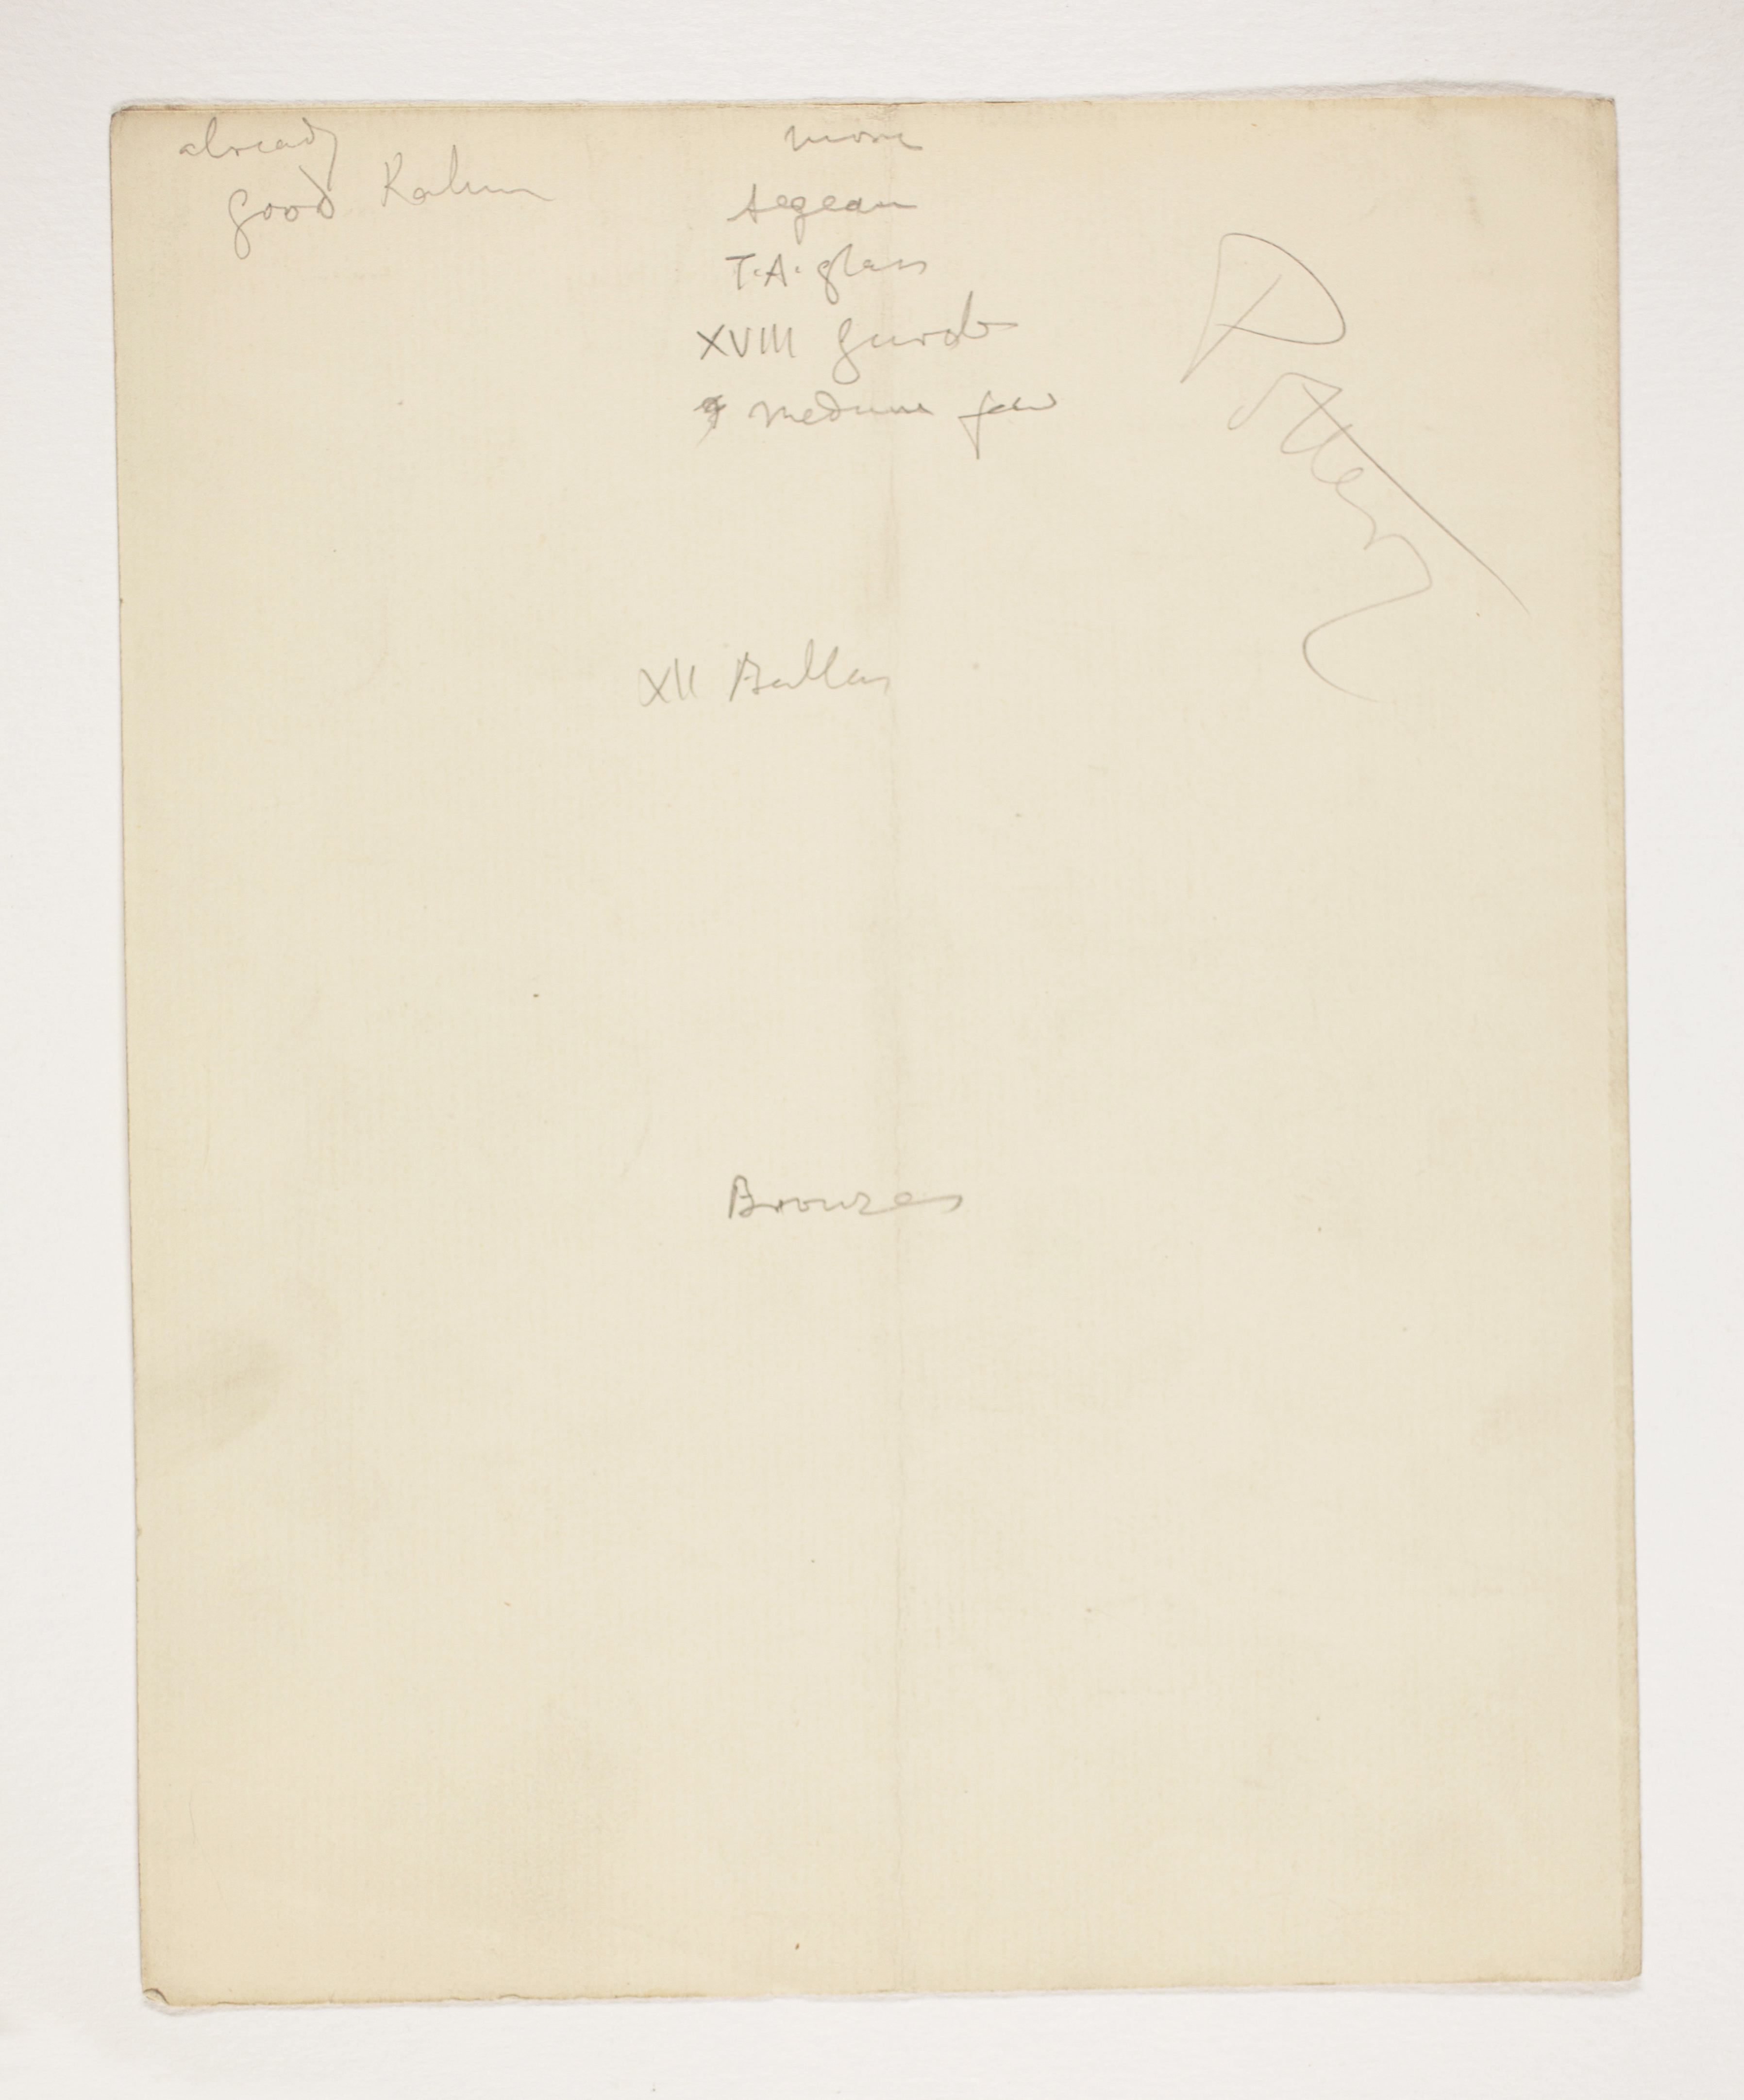 already
good Kahun
more
Aegean
T.A. glass
XVIII Gurob
medium
XII Ballas
Bronzes
Pottery